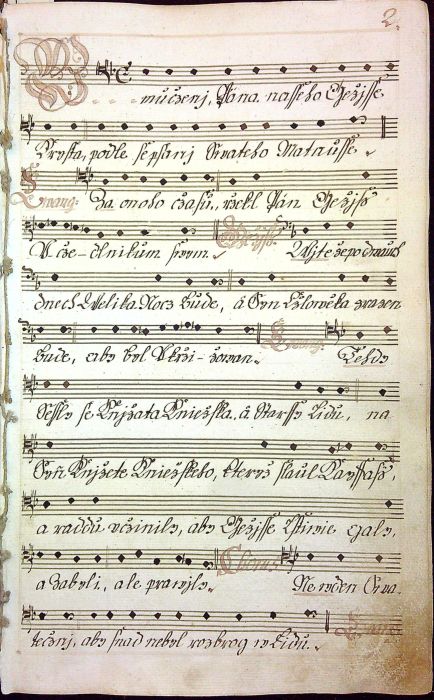 2.
mučzenj, Pana nasseho Gežjsse
Krysta, podle sepsanj Swateho Matausse
Ewang: Za onoho czasu, rzekl Pán Gežjss
Vcze-dlnikum swym. Gežjss. Wjte že po dwauch
dnech Welika Nocz bude, á Syn Czlowěka zrazen
bude, aby byl Vkrzi-žowan. Ewang: Tehdy
Sessly se Knjžata Kniežska, á Starssy Lidu, na
Syň Knjžete Kniežskeho, kteryž slaul Kayffass,
a raddu vcžinily, aby Gežjsse lstiwie gali,
a zabili, ale prawily. Chorus Ne w den Swa-
tecznj, aby snad nebyl rozbrog w Lidu.